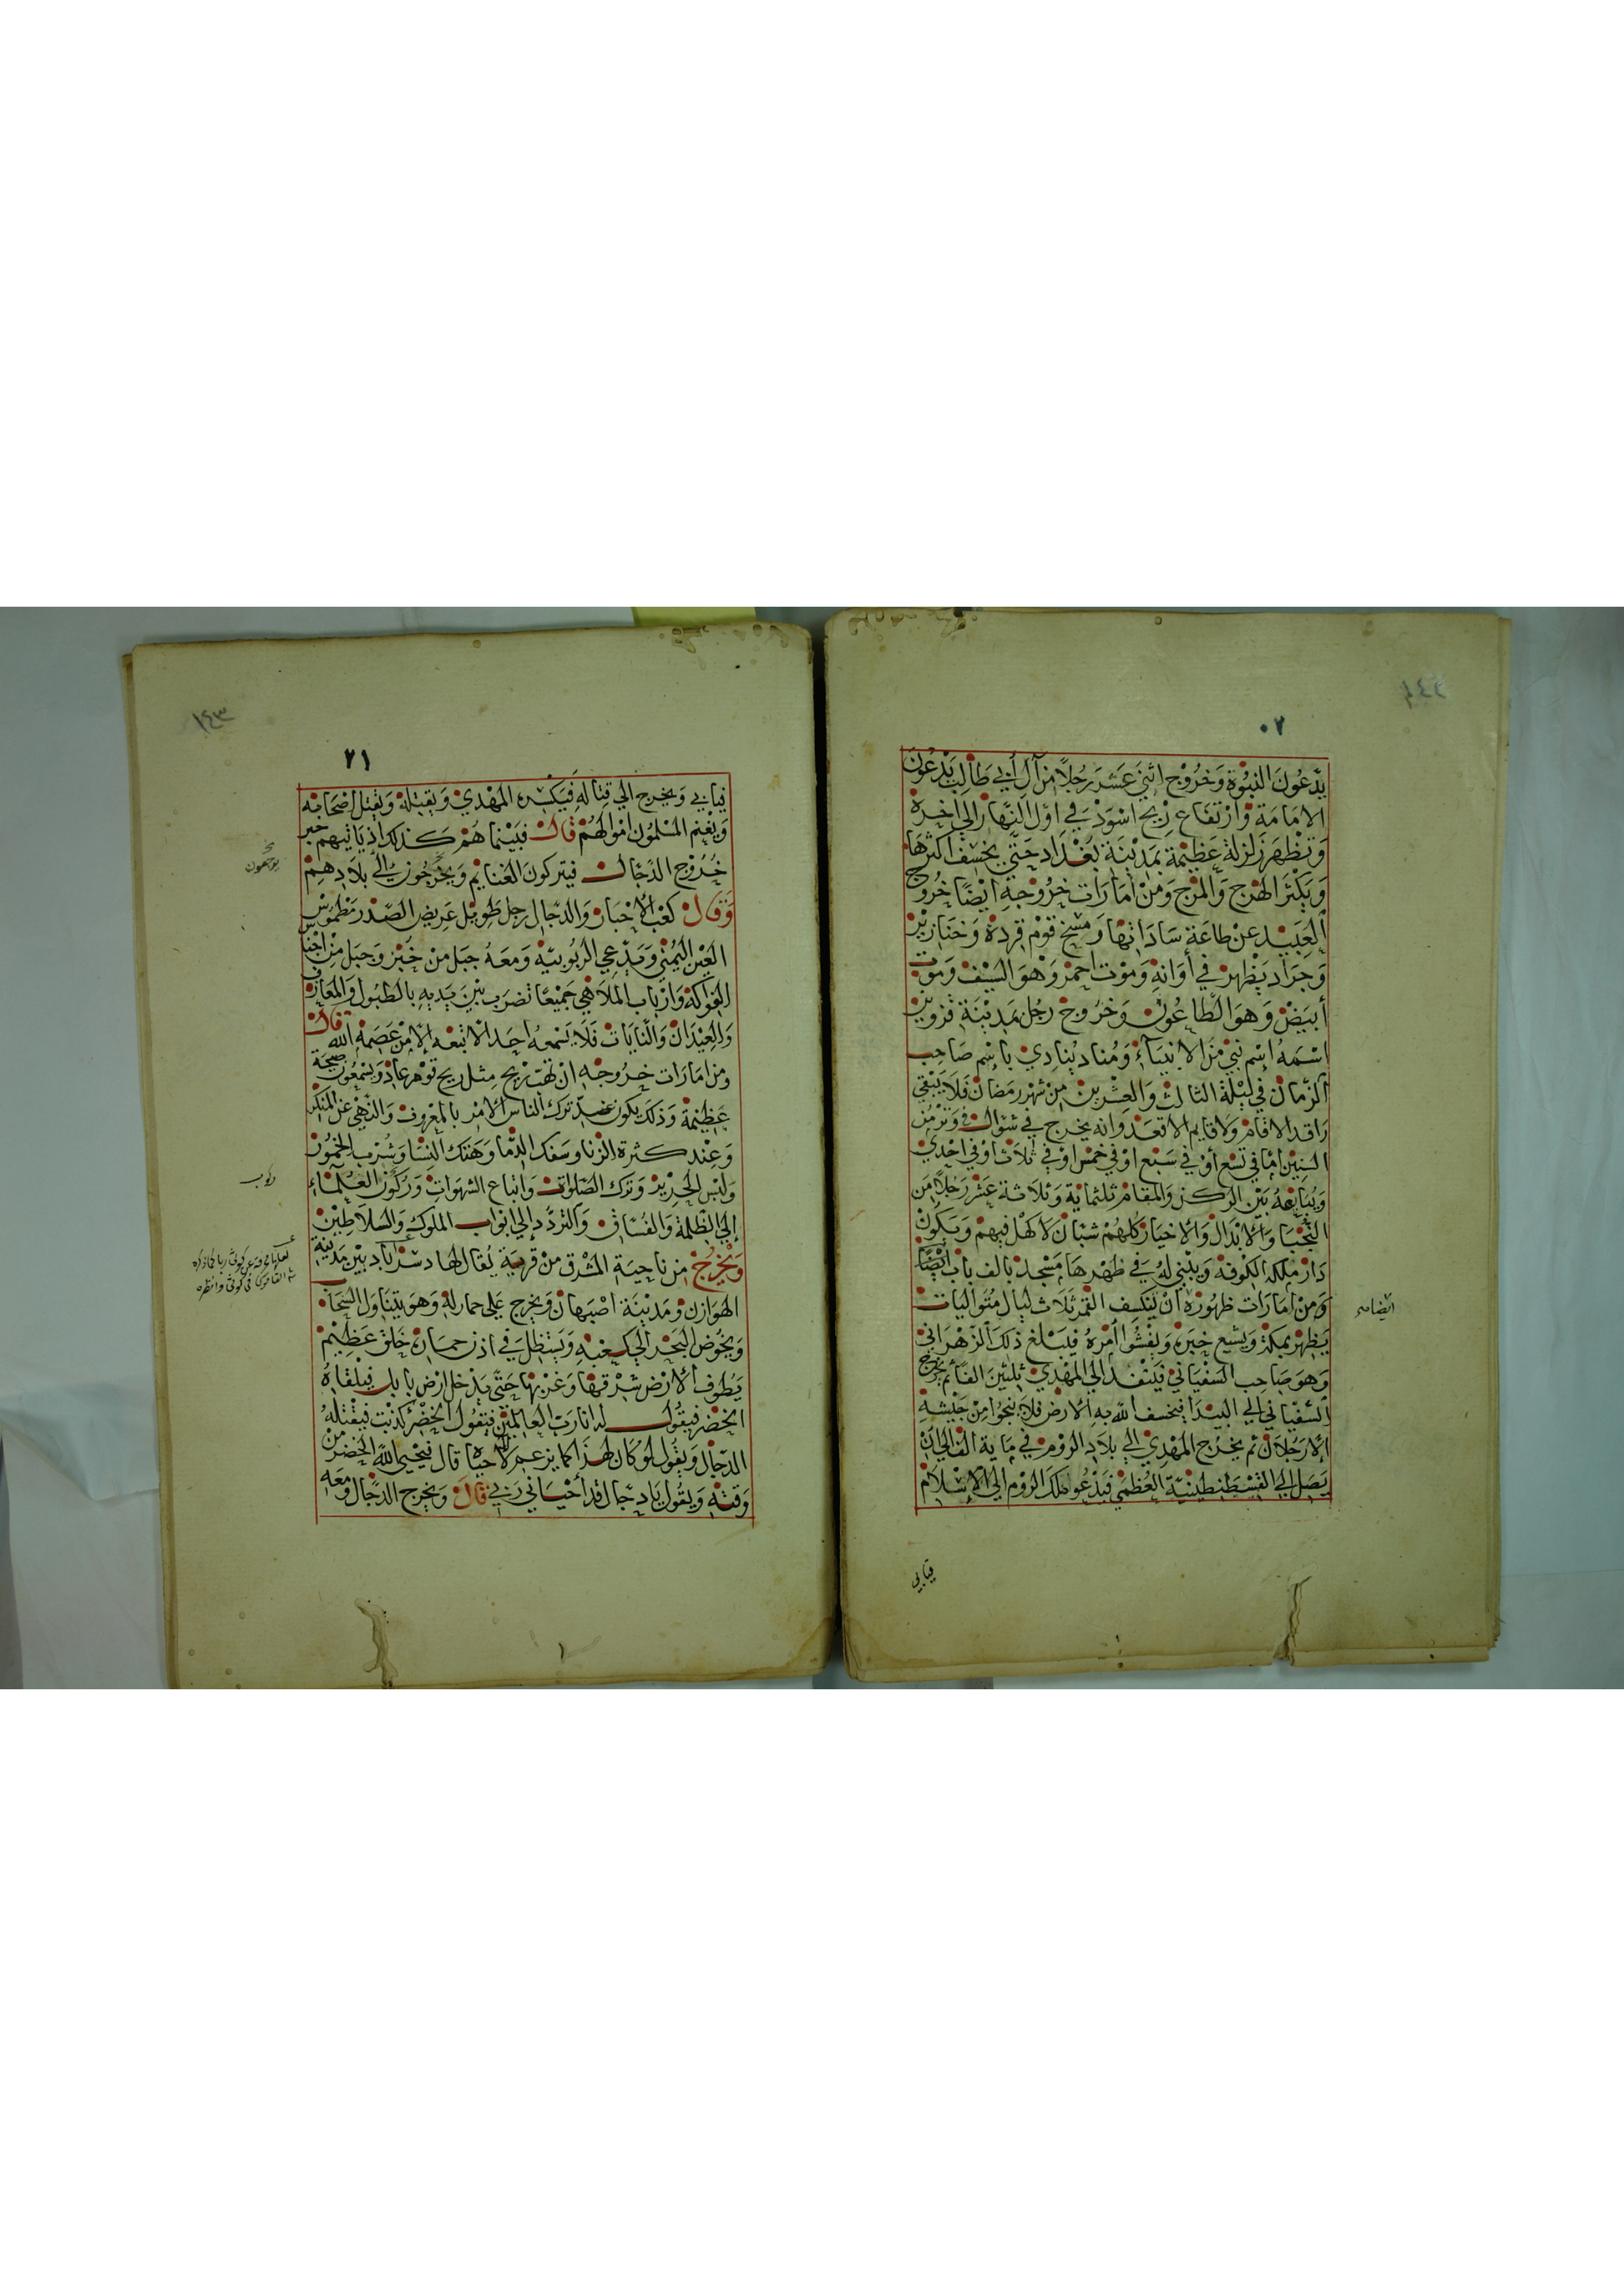 ٢٠
يَدَّعُونَ النبُوّة وَخرُوْج اثنَي عَشَرَ رَجُلاً مِنْ آلِ أَبي طَالِب يَدْعُونَ
الامَامَة وَارْتفَاع رِيْح اسْوَدْ في اوّل النّهَار الي اخِرهْ
وَتظْهَر زَلزلة عَظِيْمة بمَدِيْنَة بُغْدَاد حَتّي يخسَف اكثرهَا
وَيَكْثرَ الهَرْج وَالمَرْج وَمِنْ امَارَات خرُوْجهِ ايْضًا خُرُوج
العَبيْد عنْ طاعَة سَادَاتهَا وَمسْخ قوْم قِرَدة وَخنَازيْر
وَجرَاد يَظْهر في أوَانهِ وَموْت احمرْ وَهوَ السَّيْف وَموْت
أبيَضْ وَهوَ الطّاعُون وَخرُوْج رَجُل بمَدِيْنَة قزْوين
اسْمَهُ إسْم نبيّ مِنَ الانبيَآء وَمُناد يُنادي بإسْم صَاحِب
الزّمَان في ليْلة الثالث وَالعِشْرين مِنْ شهْر رَمَضان فلاَ يَبْقي
رَاقد الا قامْ وَلا قايم الا قعَدْ وانه يخرج في شوّال في وَتر مِنَ
السِنِيْن امّا في تسْع أوْ في سَبْع اوْ في خَمْس اوْ في ثلاث اوْ في احْدي
وَيُبَايعهُ بَيْن الركن وَالمقامْ ثلثماية وَثلاثة عَشَر رَجُلاً مِن
النّجَبَا وَالأبْدَال وَالأخيَار كلهُمْ شبّان لا كهْل فيهمْ وَيَكونْ
دَار مِلكه الكوْفة وَيبْني لهُ في ظهْرهَا مَسْجد بألف باب ايْضًا
وَمِنْ امَارَات ظهُورهْ انْ يَنكسِف القمر ثلاث ليَال مُتَوَاليَات
يَظهر بمكة وَيشيع خبره وَيفشُوا امْرهُ فيَبْلغ ذلكَ الزهْرَاني
وَهوَ صَاحب السّفيَاني فيَنْفُذ الي المَهْدي ثلثين الفًا ثم يخرج
السّفيَاني الي البيْدَا فيخسف الله به الأرْض فلا يَنجُوا مِنْ جَيْشهِ
إلا رَجُلان ثم يخرُج المَهْدي الي بلاَد الرّوْم في مَاية الف الي انْ
يَصِل الي القسْطنطِيْنيّة العُظمي فيَدْعُوا مَلكَ الرّوْم الي الإسْلامْ
فيابي
٢١
فيَابي وَيخرج الي قِتالهِ فيَكسْره المَهْدي وَيقتِله وَيقتل اصْحَابه
وَيغْنم المسْلمُون امْوَالهُمْ قال فبَيْنما هُمْ كذلك اذ يَاتيهم خبر
خرُوْج الدّجّال فيَتركون الغنايم وَيخرجُون الي بلاَدهِمْ
وَقال كعْب الأحْبار وَالدجّال رجل طَويْل عَريض الصّدر مَطْموس
العَيْن اليُمْني وَيَدّعي الرّبُوبيّة وَمَعَهُ جبَل من خُبْز وَجبَل مِنْ اجْناس
الفوَاكه وَارْبَاب المَلاَهي جَميْعًا تضرَب بَيْنَ يَدَيه بالطبُول وَالمعَازف
وَالعِيْدَان وَالنّايَات فلا يَسْمعهُ احَد الا تبعَه الا مَنْ عَصَمهُ الله قال
وَمِنْ امَارَات خرُوجهِ انْ تهبّ ريْح مِثل ريح قوْم عَاد وَيسْمعُون صَيْحَة
عَظِيمة وَذلكَ يكون عند ترك الناس الأمْر بالمعْروف وَالنّهْي عَن المنكر
وَعِنْد كثرة الزّنا وَسفك الدّمَا وَهَتك النسَا وَشُرْب الخمُوْر
وَلبْس الحَرِيرْ وَتَرك الصّلوَات وَاتباع الشهوَات وَرَكُونْ العُلمَآء
إلي الظلمَة وَالفُسّاق وَالترَدّد إلي ابْوَاب الملُوك وَالسَلاطِيْن
وَيَخرُج مِن ناحيَة المشْرق مِنْ قريَة يُقال لهَا دسْرَاباد بين مَدِينة
الهوَازن وَمَدِيْنة اصْبهَان وَيخرج عَلي حمَار لهُ وَهوَ يتنَاوَل السّحَاب
وَيخُوْض البَحْر الي كعْبهِ وَيَسْتظِل في اذن حمارِه خَلق عَظِيْم
يَطوف الأرْض شرْقهَا وَغرْبهَا حَتّي يَدْخل ارْض بابل فيلْقاهُ
الخضْر فيقول له انا رَبّ العَالميْن فيَقول الخضْر كذبْت فيقْتلهُ
الدّجّال وَيقول لوْ كان لهذا اله كما يزعم لأحيَاه قال فيُحيي الله الخضر من
وَقتهِ وَيقول يَا دجّال قد أحيَاني رَبي قال وَيخرج الدّجّال وَمعَه